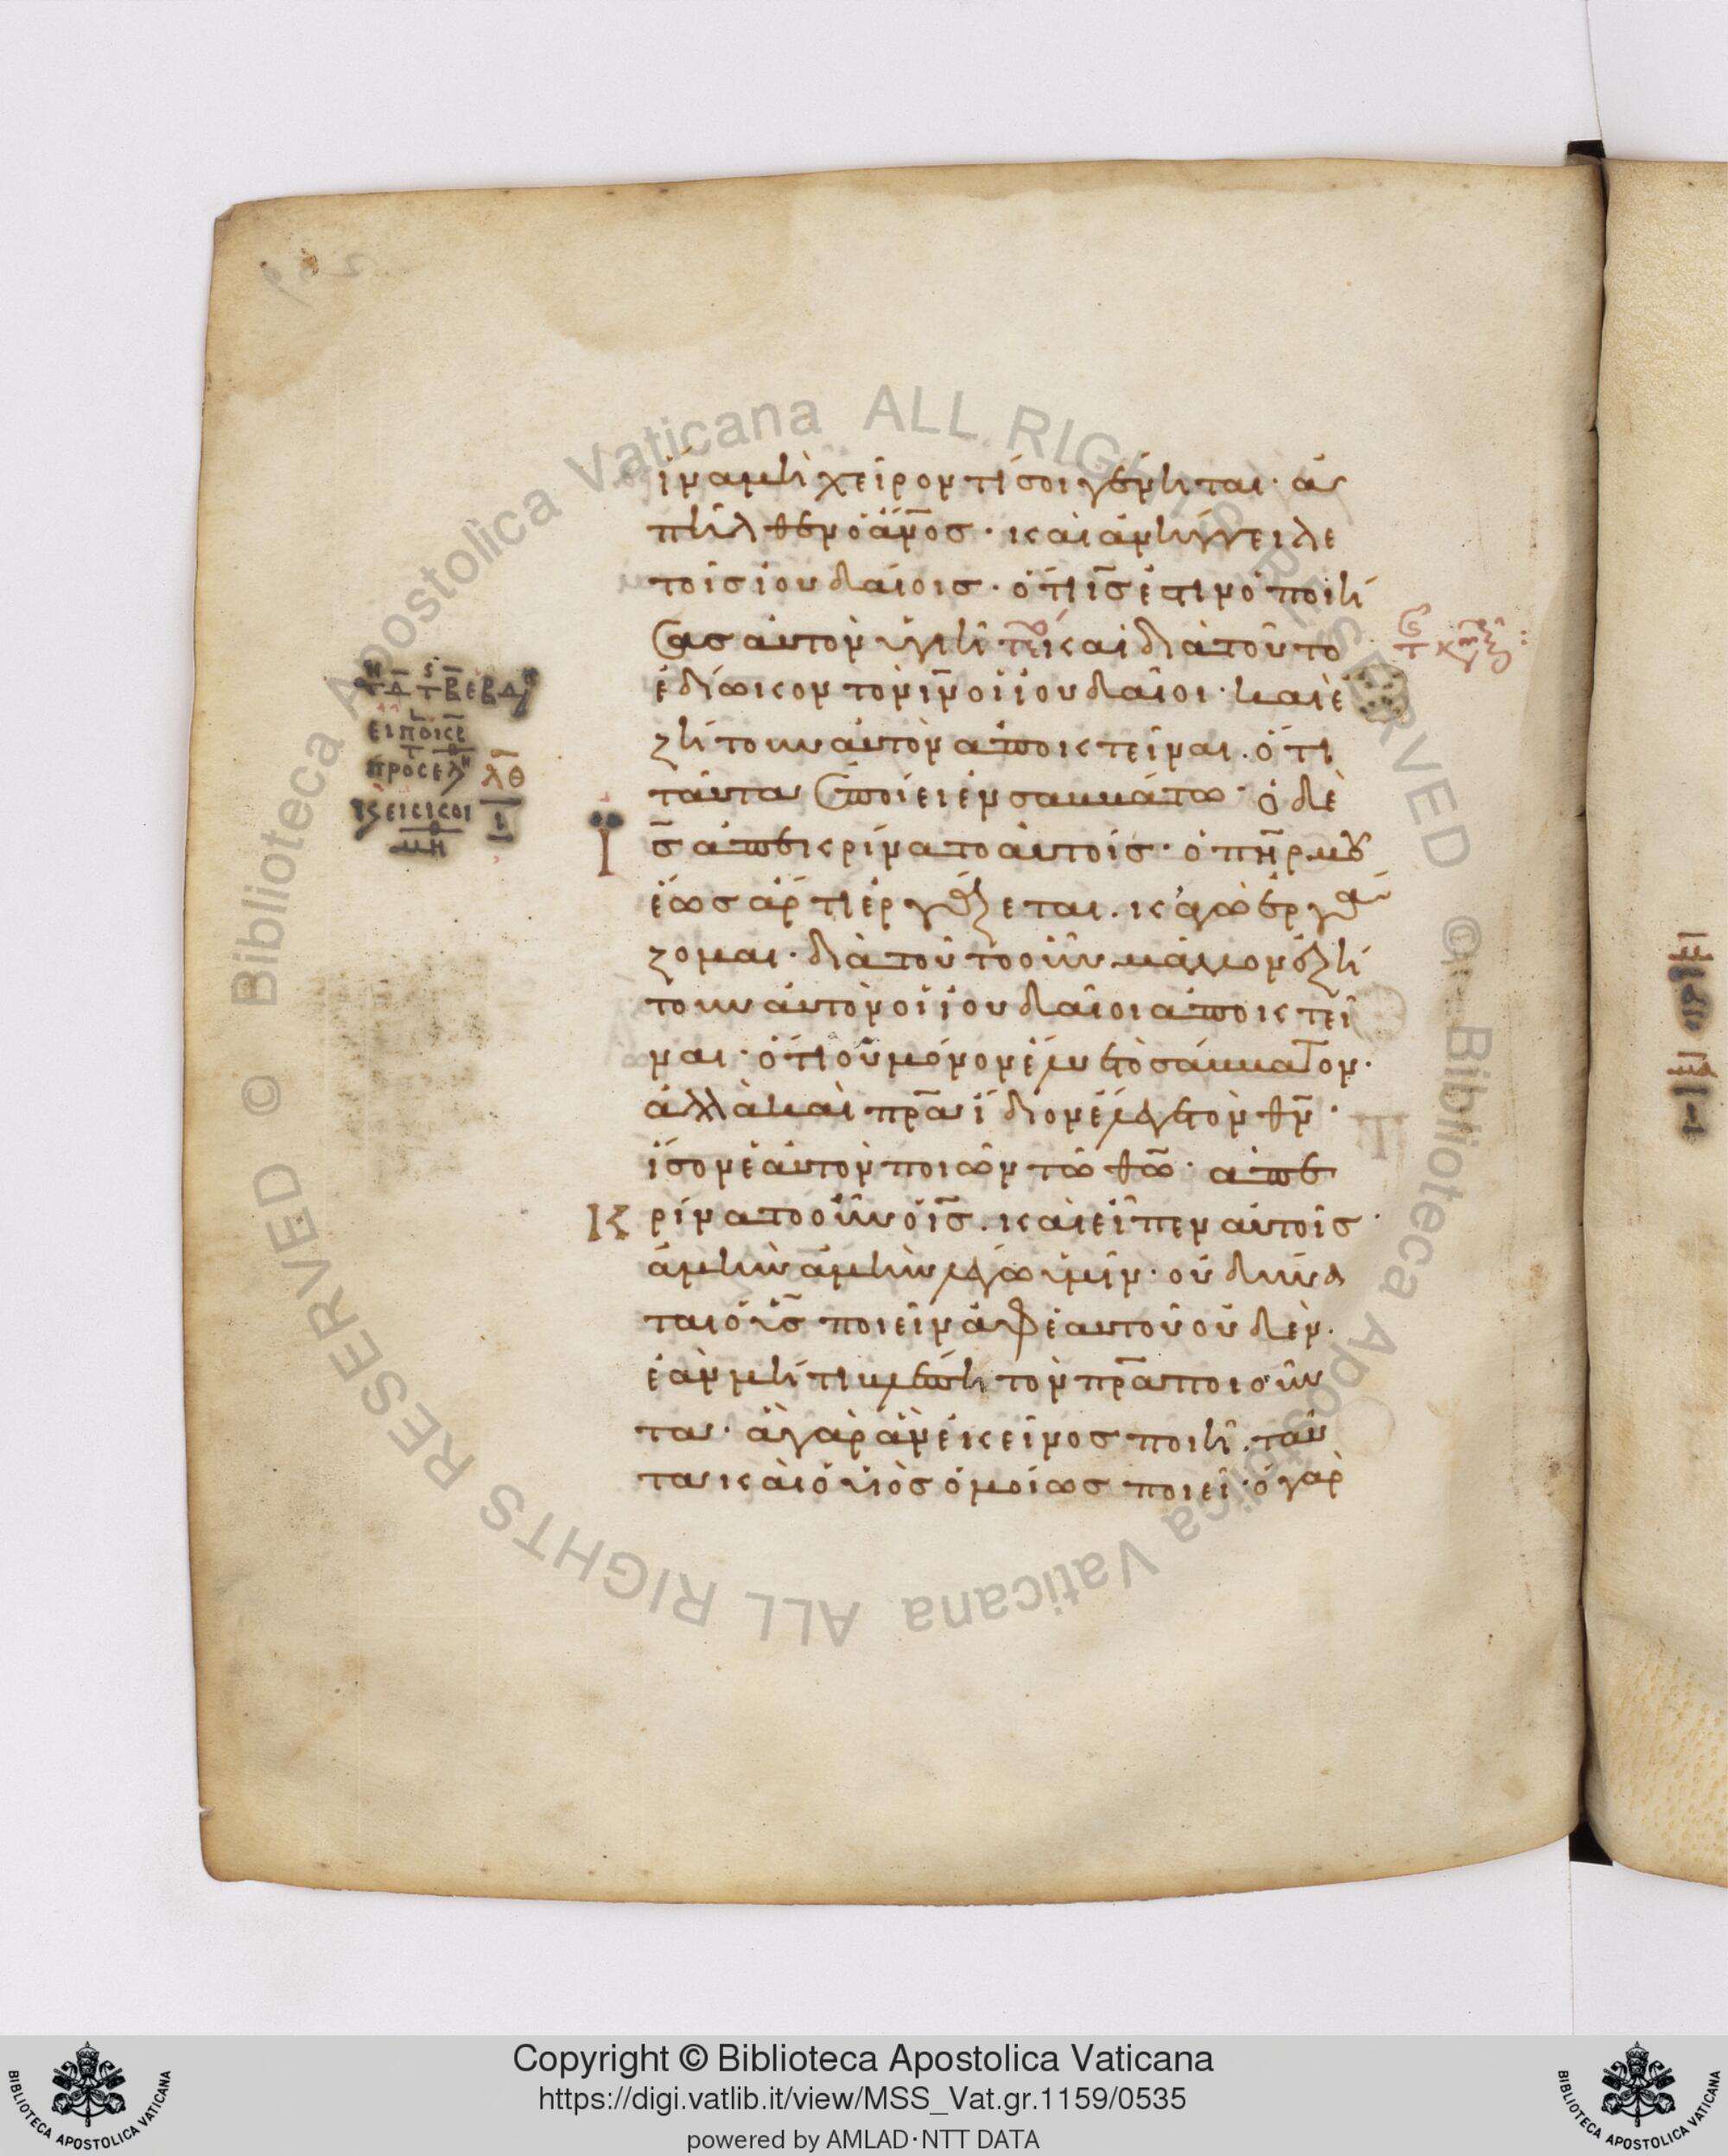 ἵνα μὴ χεῖρον τί σοι γένηται· ἀ
πῆλθεν ὁ ἄν̅ος· καὶ ἀνήγγειλε
τοῖς ἰουδαίοις· ὅτι ι̅ς̅ ἐστιν ὁ ποιή
σας αὐτὸν ὑγιῆ καὶ διὰ τοῦτο
ἐδίωκον τὸν ι̅ν̅ οἱ ἰουδαῖοι· καὶ ἐ
ζήτουν αὐτὸν ἀποκτεῖναι· ὅτι
ταῦτα ἐποίει ἐν σαββάτω· ὁ δὲ
Ι
ς̅ ἀπεκρίνατο αὐτοῖς· ὁ π̅η̅ρ μου
ἕως ἄρτι ἐργάζεται· κἀγὼ ἐργά
ζομαι· διὰ τοῦτο οὖν μᾶλλον ἐζή
τουν αὐτὸν οἱ ἰουδαῖοι ἀποκτεῖ
ναι· ὅτι οὐ μόνον ἔλυε τὸ σάββατον·
ἀλλὰ καὶ π̅ρ̅α ἴδιον ἔλεγε τὸν θ̅ν̅·
ἴσον ἑαυτὸν ποιῶν τῶ θ̅ω̅· ἀπε
Κ
ρίνατο οὖν ὁ ι̅ς̅· καὶ εἶπεν αὐτοῖς·
ἀμὴν ἀμὴν λέγω ὑμῖν· οὐ δύνα
ται ὁ υ̅ς̅ ποιεῖν ἀφ ἑαυτοῦ οὐδέν·
ἐὰν μή τι βλέπη τὸν π̅ρ̅α ποιοῦν
τα· ἃ γὰρ ἂν ἐκεῖνος ποιῆ· ταῦ
τα καὶ ὁ υἱὸς ὁμοίως ποιεῖ· ὁ γὰρ
λ̅θ̅
ι̅
Copyright © Biblioteca Apostolica Vaticana
https://digi.vatlib.it/view/MSS_Vat.gr.1159/0535
powered by AMLAD·NTT DATA
BIBLIOTECA APOSTOLICA VATICANA
BIBLIOTECA APOSTOLICA VATICANA
© Biblioteca Apostolica Vaticana ALL RIGHTS RESERVED © Biblioteca Apostolica Vaticana ALL RIGHTS RESERVED